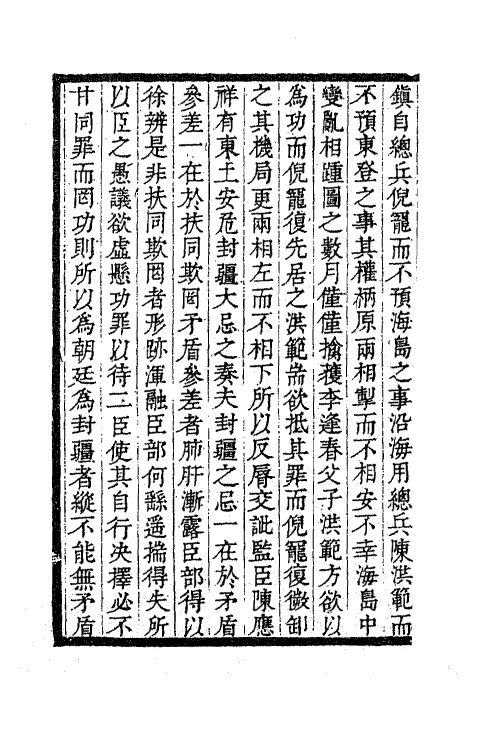 鎮自總兵倪寵而不預海島之事沿海用總兵陳洪範而
不預東登之事其權柄原兩相掣而不相安不幸海島中
變亂相踵圖之數月僅僅擒穫李逢春父子洪範方欲以
為功而倪寵復先居之洪範耑欲抵其罪而倪寵復微卸
之其機局更兩相左而不相下所以反脣交訿監臣陳應
祥有東土安危封疆大忌之奏夫封疆之忌一在於矛盾
參差一在於扶同欺罔矛盾參差者肺肝漸露臣部得以
徐辨是非扶同欺罔者形跡渾融臣部何繇遥揣得失所
以臣之愚議欲虛懸功罪以待二臣使其自行决擇必不
甘同罪而罔功則所以為朝廷為封疆者縱不能無矛盾